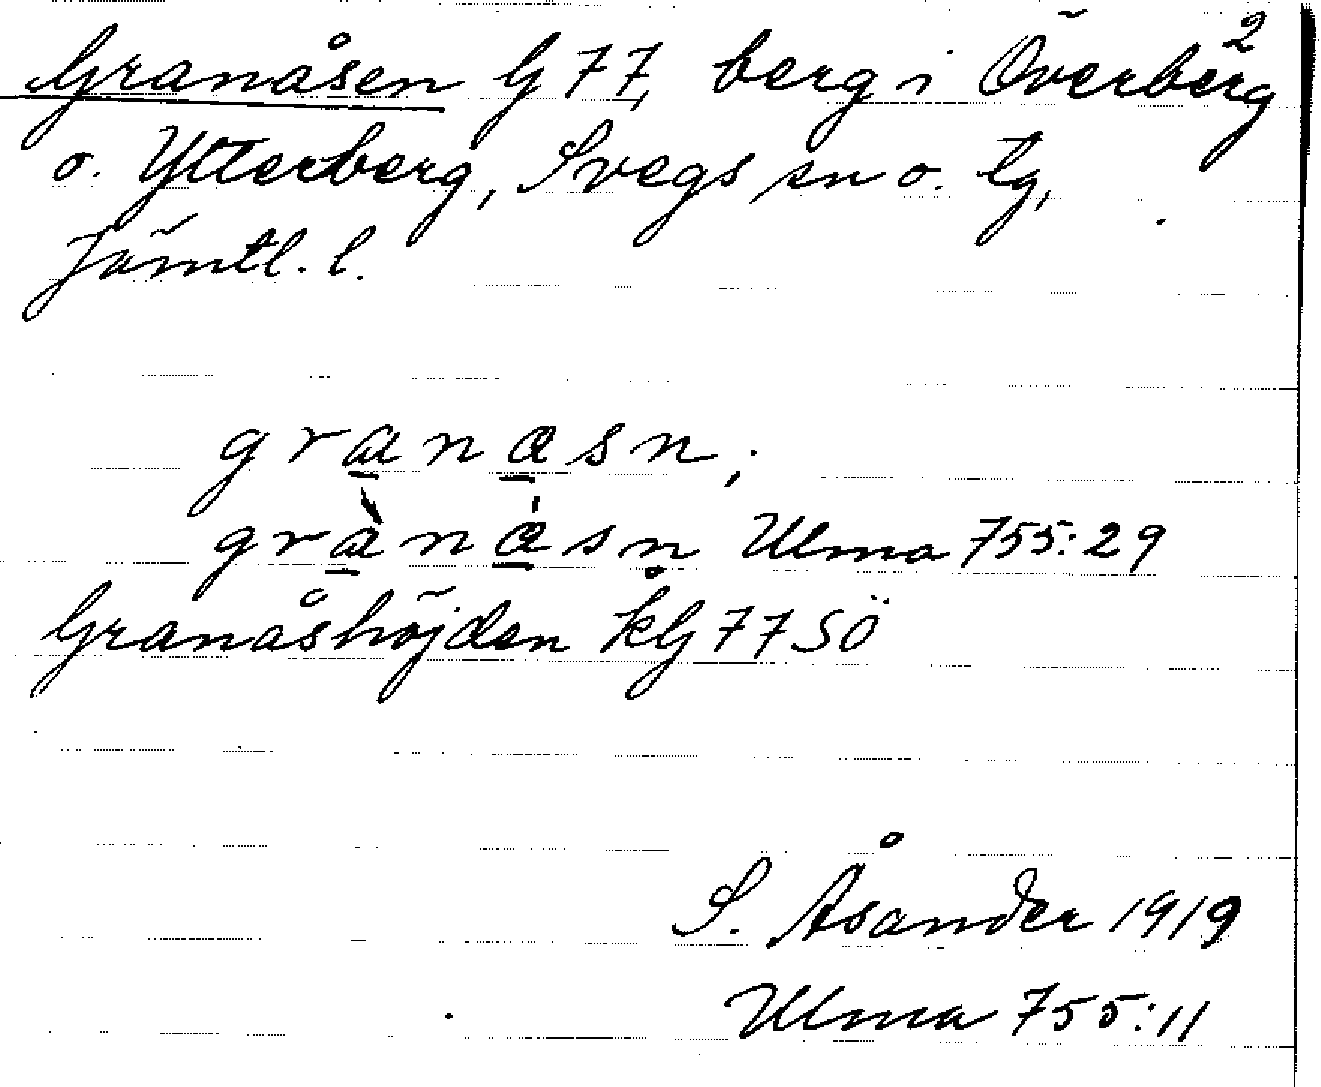 Granåsen G 77, berg i Överberg 2
o. Ytterberg, Svegs sn o. tg,
Jämtl. l.
granasn;
grànásn Ulma 755:29
Granåshöjden kG 77 SÖ
S. Åsander 1919
Ulma 755:11